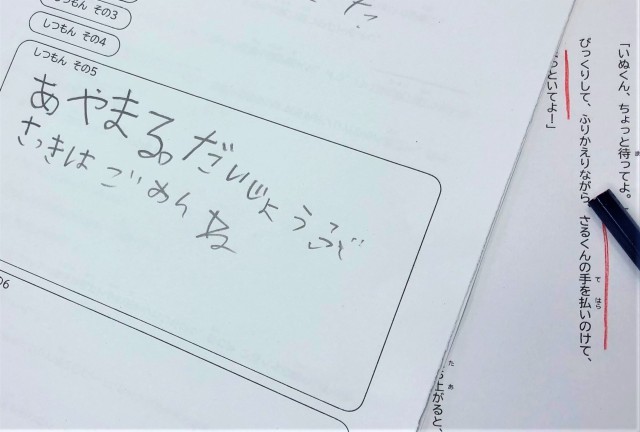 しつもん その3
しつもん その4
しつもん その5
あやまる。だいじょうぶ
さっきはごめんね
「いぬくん、ちょっと待ってよ。
びっくりして、ふりかえりながら、さるくんの手を払いのけて、
っといてよ！」
上がると、